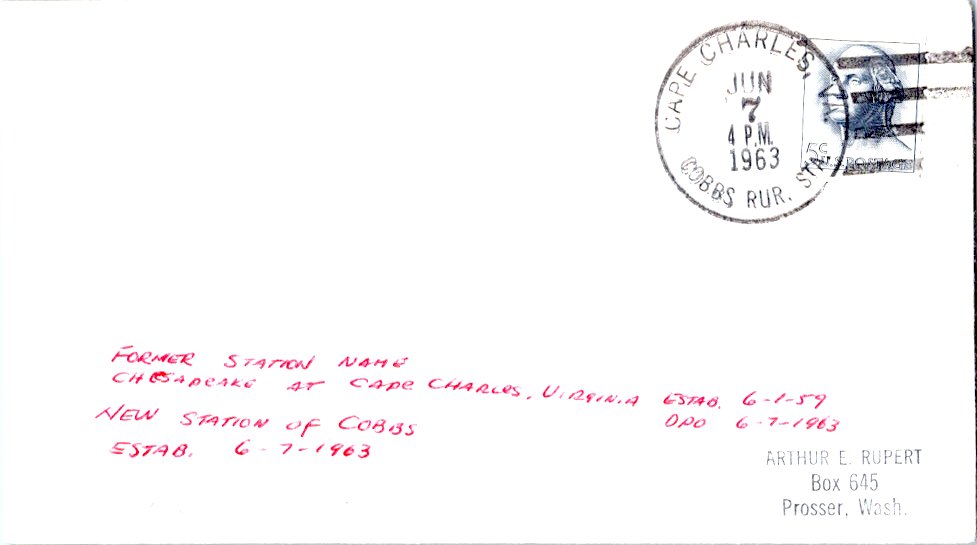 CAPE CHARLES, VA.
JUN
7
4 P.M.
1963
COBBS RUR. STA.
5¢
U.S. POSTAGE
FORMER STATION NAME
CHESAPEAKE AT CAPE CHARLES, VIRGINIA ESTAB. 6-1-59
DPO 6-7-1963
NEW STATION OF COBBS
ESTAB. 6-7-1963
ARTHUR E. RUPERT
Box 645
Prosser, Wash.